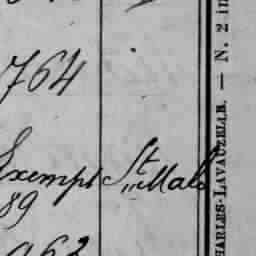 764
Exempt St Malo
89
963
CHARLES-LAVAUZELLE. — N. 2 in